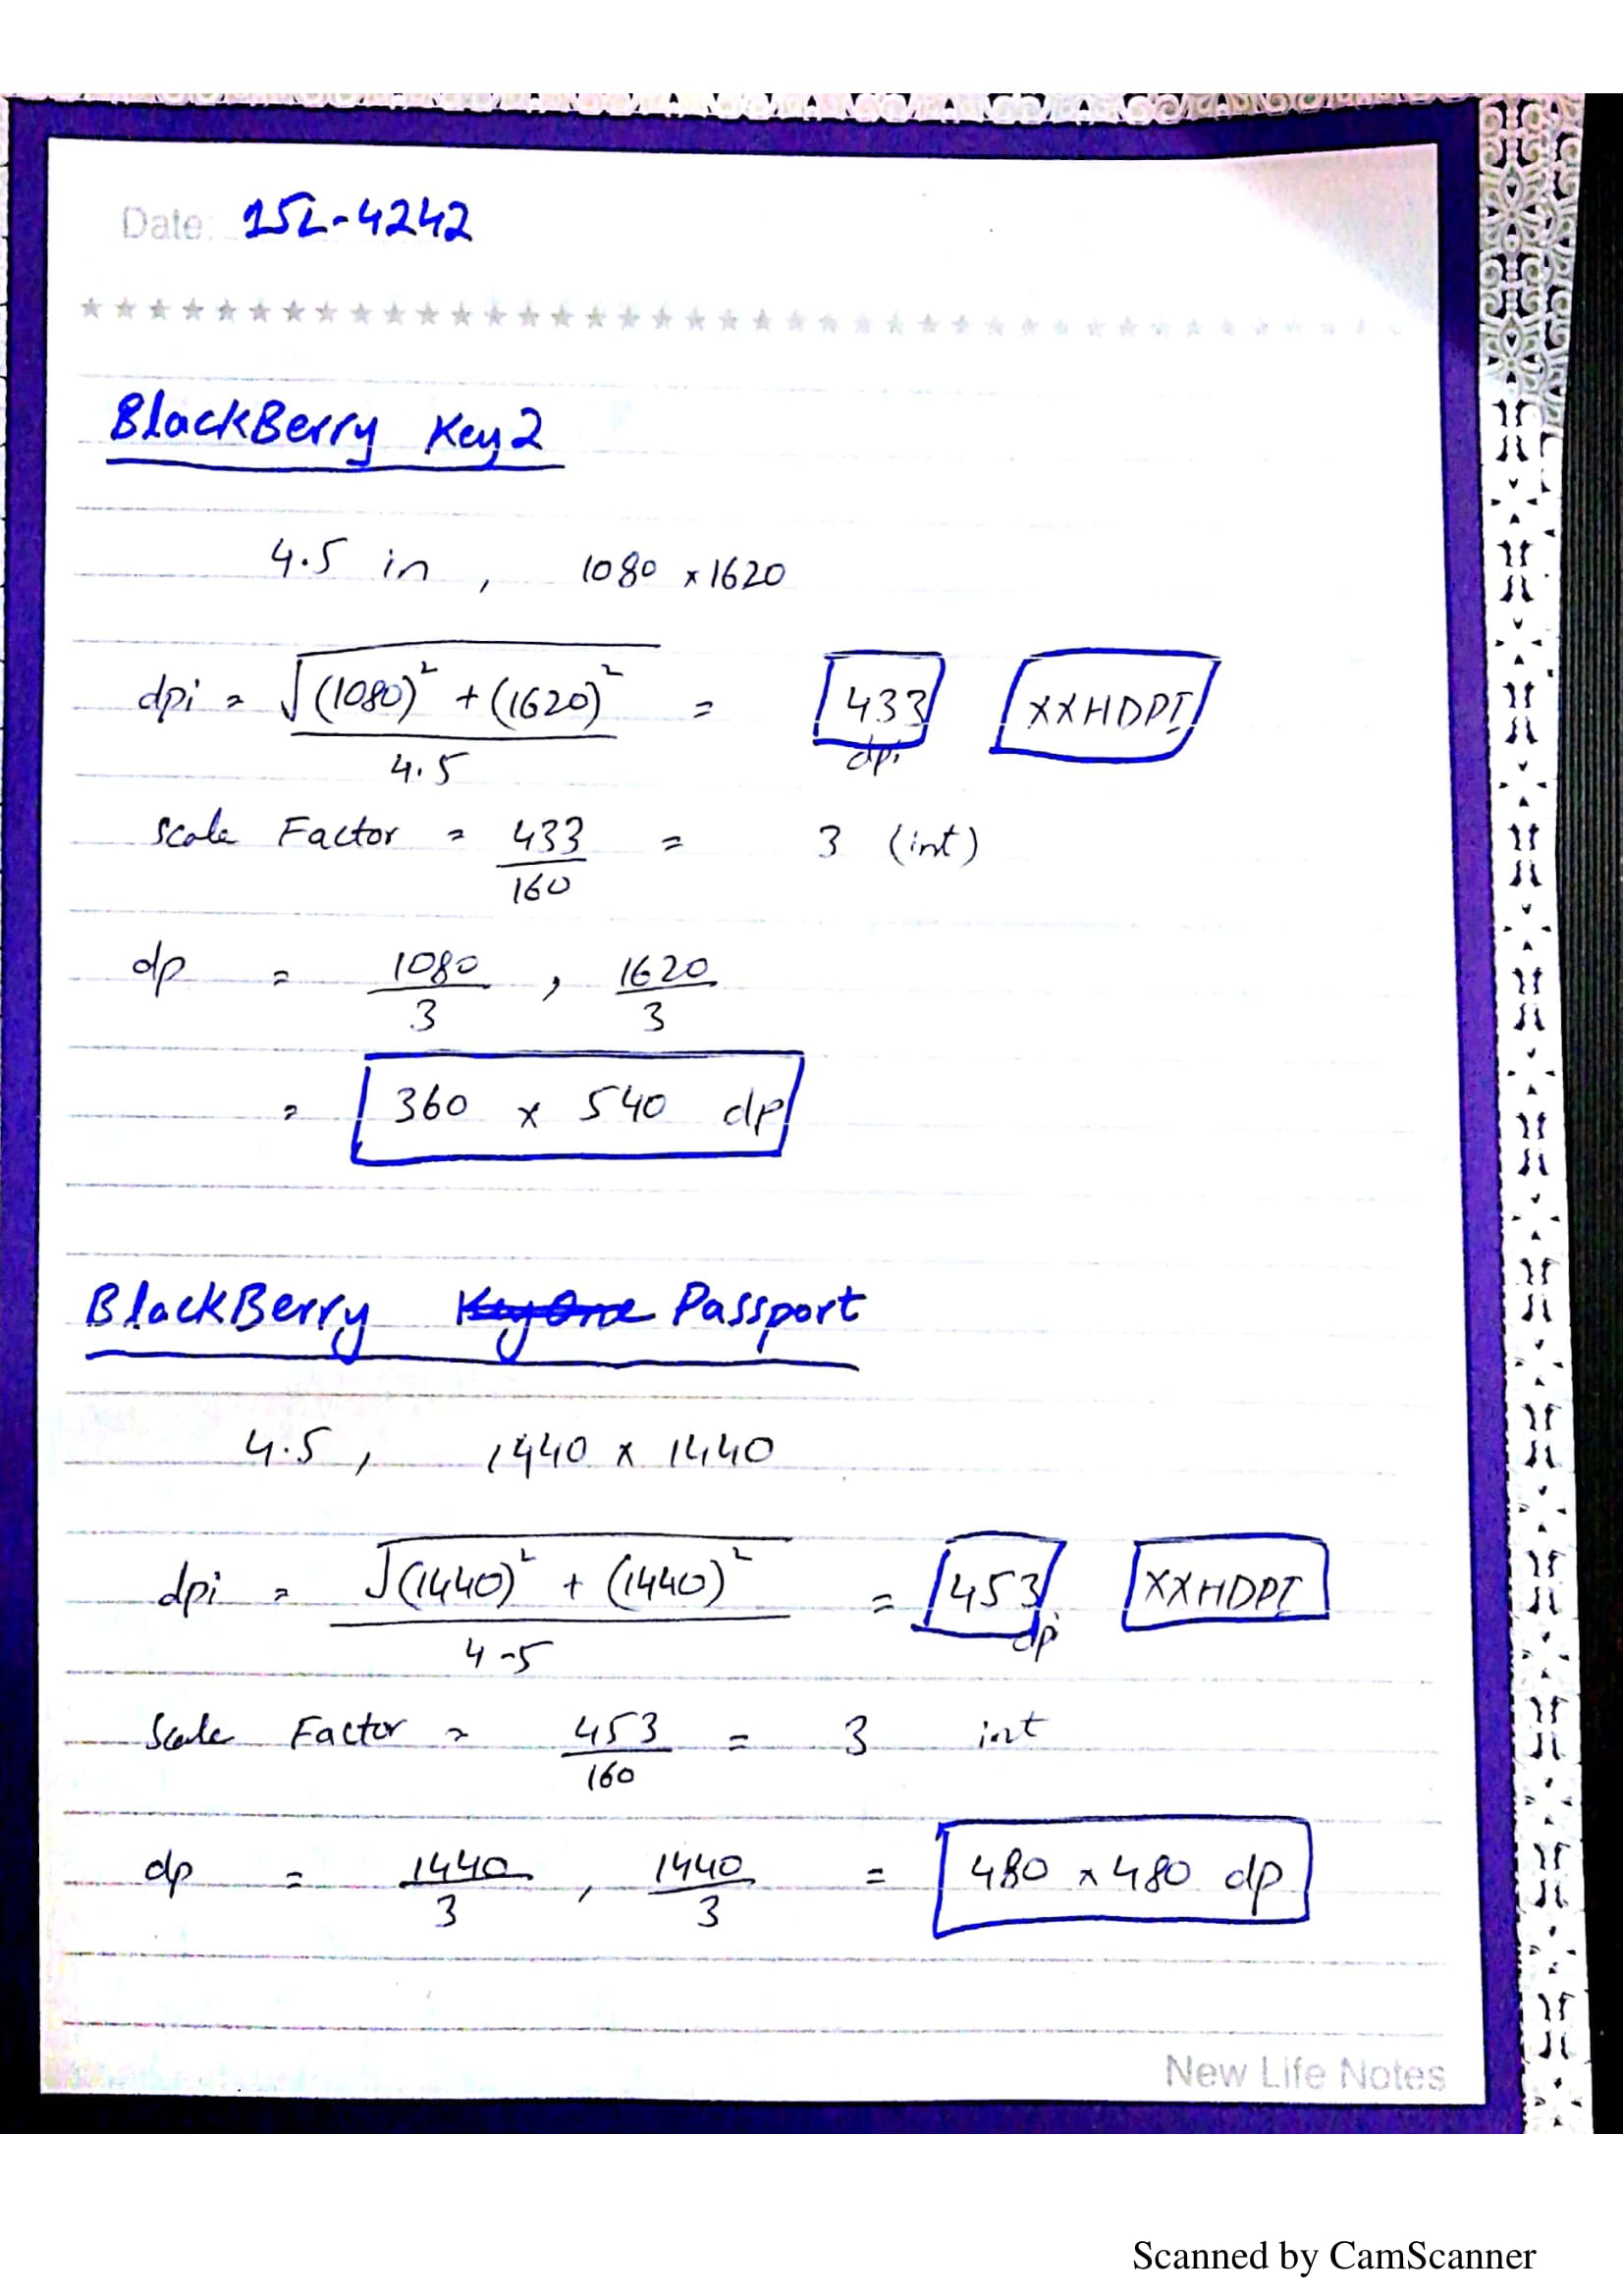 Date: 15L-4242
BlackBerry Key2
4.5 in , 1080 x 1620
dpi = √(1080)² + (1620)² / 4.5 = 433 dpi XXHDPI
Scale Factor = 433/160 = 3 (int)
dp = 1080/3 , 1620/3
= 360 x 540 dp
BlackBerry KeyOne Passport
4.5 , 1440 x 1440
dpi = √(1440)² + (1440)² / 4.5 = 453 dpi XXHDPI
Scale Factor = 453/160 = 3 int
dp = 1440/3 , 1440/3 = 480 x 480 dp
New Life Notes
Scanned by CamScanner